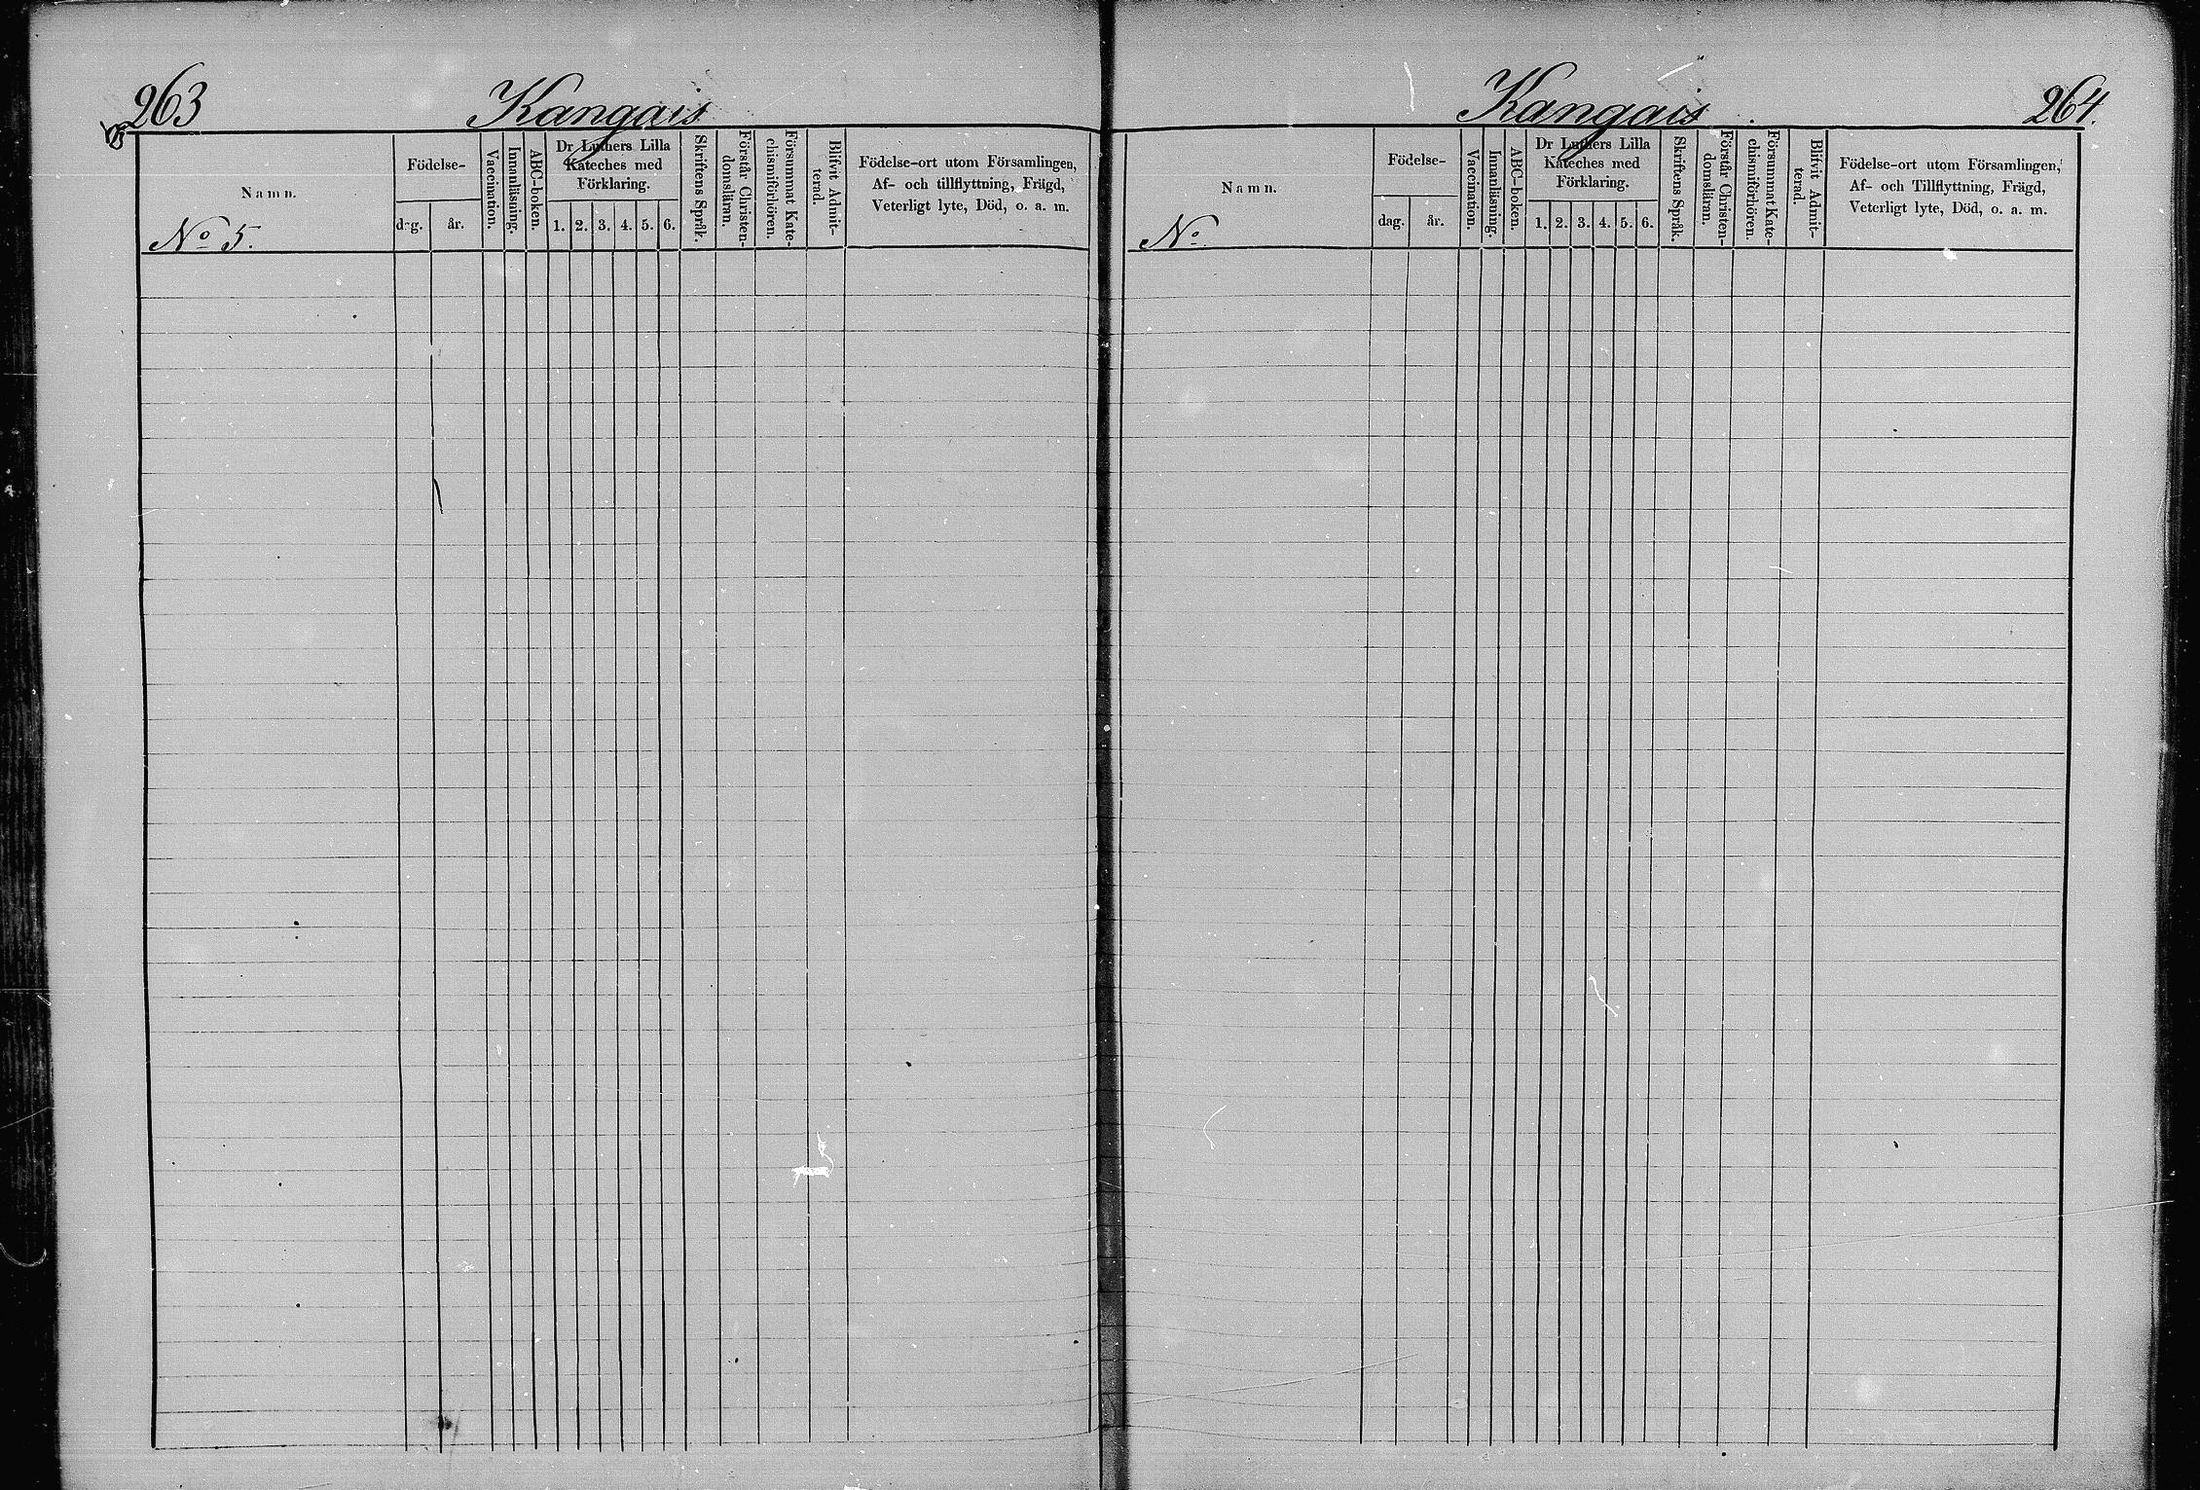 263
Kangais
Namn.
No 5.
Födelse-
dag.
år.
Vaccination.
Innanläsning.
ABC-boken.
Dr Luthers Lilla
Kateches med
Förklaring.
1. 2. 3. 4. 5. 6.
Skriftens Språk.
Förstår Christen-
domsläran.
Försummat Kate-
chismiförhören.
Blifvit Admit-
terad.
Födelse-ort utom Församlingen,
Af- och tillflyttning, Frägd,
Veterligt lyte, Död, o. a. m.
Kangais
264.
Namn.
No
Födelse-
dag.
år.
Vaccination.
Innanläsning.
ABC-boken.
Dr Luthers Lilla
Kateches med
Förklaring.
1. 2. 3. 4. 5. 6.
Skriftens Språk.
Förstår Christen-
domsläran.
Försummat Kate-
chismiförhören.
Blifvit Admit-
terad.
Födelse-ort utom Församlingen,
Af- och Tillflyttning, Frägd,
Veterligt lyte, Död, o. a. m.